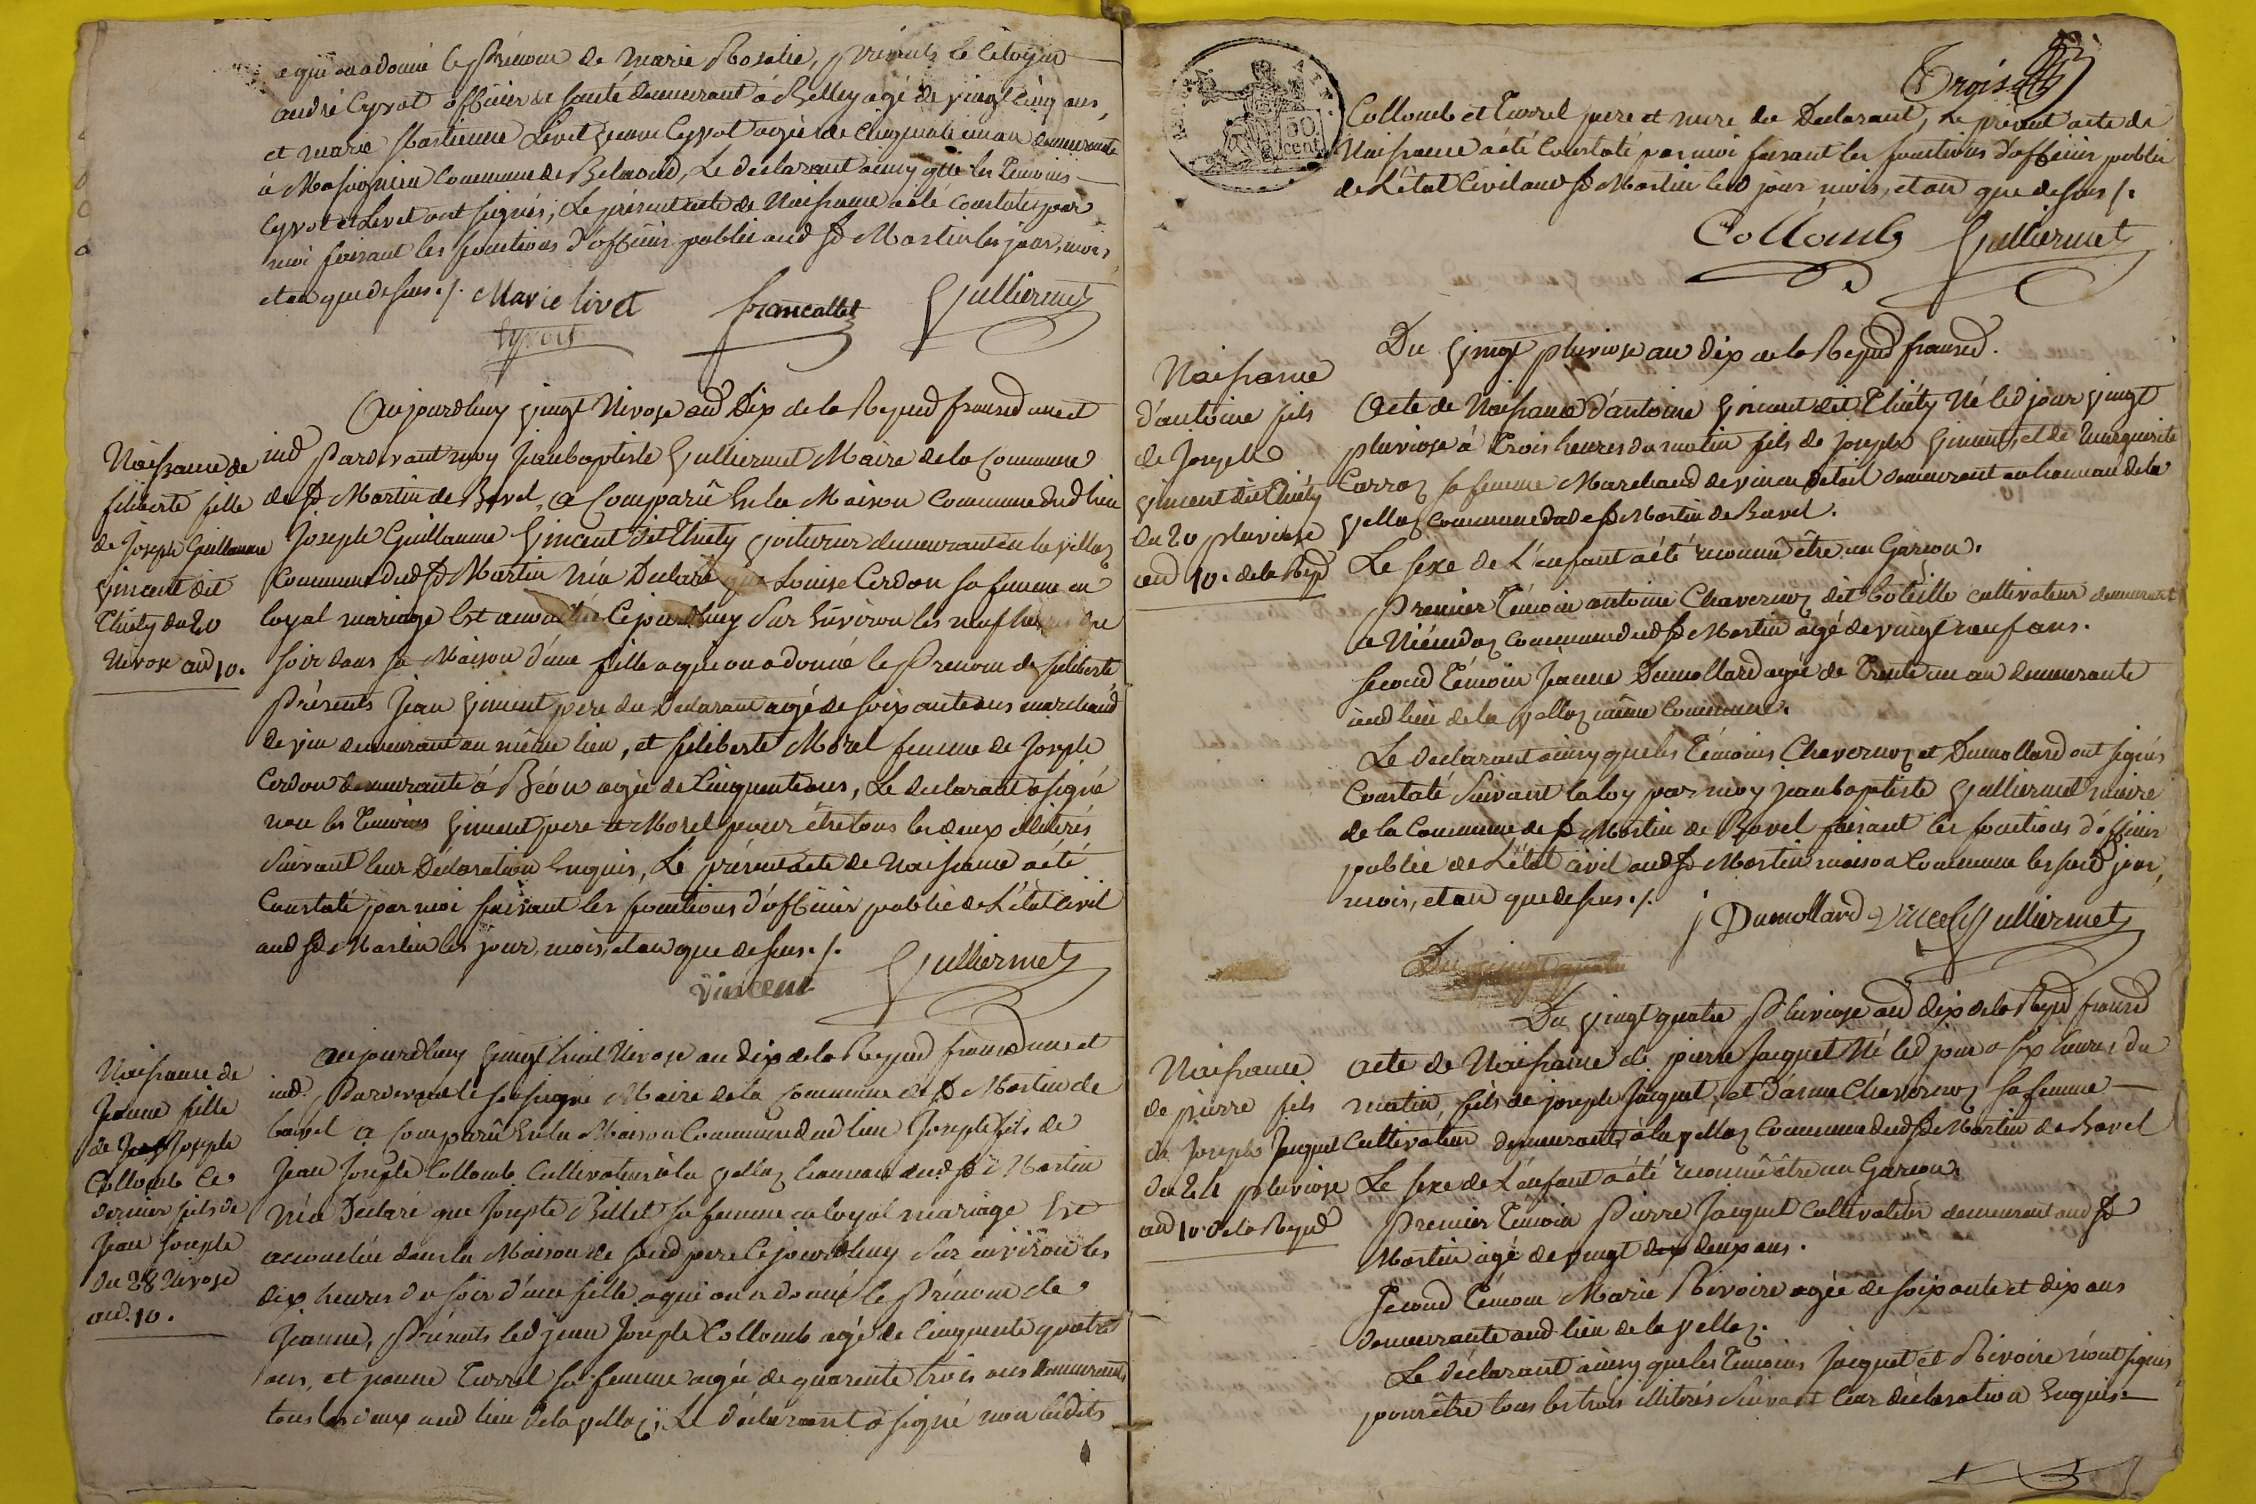 a qui on a donné le Prénom de Marie Rosalie, présents le Citoyen
andré Cyvot officier de santé demeurant á Belley agé de vingt cinq ans,
et marie Livet agée de Cinquante un an demeurante
á Massignieu Commune de Belmond, Le déclarant ainsy que les Témoins
Cyvot et Livet ont signés, Le présent acte de Naissance a été Constaté par
moi faisant les fonctions d'officier public aud St Martin les jour, mois,
et an que dessus ./. Marie livet francallet Gulliermet
Cyvot
Aujourdhuy vingt Nivose and Dix de la Repud fransed une et
Naissance de
filiberte fille
de Joseph Guillaume
Vincent dit
Thiéty du 20
Nivose and 10.
ind Pardevant moy Jeanbaptiste Gulliermet Maire de la Commune
de St Martin de Bavel, a Comparû En la Maison Commune dud lieu
Joseph Guillaume Vincent dit Thiety voiturier demeurant en la vellaz
Commune dud St Martin m'a Declaré que Louise Cerdon sa femme en
loyal mariage Est accouchée Cejourdhuy Sur Environ les neuf heures du
soir dans sa Maison d'une fille a que on a donné le Prenom de filiberte
Présents Jean Vincent pere du Declarant agé de soixante ans marchand
de vin demeurant au même lieu, et filiberte Morel femme de Joseph
Cerdon demeurante á Béon agée de Cinquante ans, Le declarant a signé
non les Témoins Vincent pere et Morel pour étre tous les deux illitérés
suivant leur Déclaration Enquis, Le présent acte de Naissance a été
Constaté par moi faisant les fonctions d'officier public de L'état Civil
aud St Martin les jour, mois, et an que dessus ./.
Vincent Gulliermet
Naissance de
Jeanne fille
de Joseph
Collomb Ce
dernier fils de
Jean Joseph
du 28 Nivose
and. 10.
aujourdhuy vingt huit Nivose an dix de la Repud fransed une et
ind. Pardevant le soussigné Maire de la Commune de St Martin de
bavel a Comparû En la Maison Commune dud lieu Joseph fils de
Jean Joseph Collomb Cultivateur á la vellaz hameau dud St Martin
m'a Déclaré que Josepte Billet sa femme en loyal mariage Est
accouchée dans la Maison de sond pere Cejourdhuy Sur environ les
dix heures du soir d'une fille a qui on a donné le Prénom de
Jeanne, Présents led jean Joseph Collomb agé de Cinquante quatre
ans, et jeanne Turrel sa femme agée de quarente trois ans demeurants
tous les deux aud lieu de la vellaz; Le déclarant a signé non lesdits
Trois
50 cent
Collomb et Turrel pere et mere du Declarant, Le présent acte de
Naissance a été Constaté par moi faisant les fonctions d'officier public
de L'état Civil aud St Martin led jour, mois, et an que dessus ./.
Collomb Gulliermet
Du vingt pluviose an dix de la Repud fransed.
Naissance
d'antoine fils
de Joseph
Vincent dit Thiéty
du 20 pluviose
and 10. de la Repd
Acte de Naissance d'antoine Vincent dit Thiéty Né led jour vingt
pluviose á Trois heures du matin fils de Joseph Vincent, et de Marguerite
Carraz sa femme Marchand de vin en Detail demeurant au hameau de la
vellaz Commune dud St Martin de Bavel.
Le sexe de L'enfant a été reconnû être un Garçon.
Premier Témoin antoine Chavernoz dit boteille cultivateur demeurant
a Niéudaz Commune dud St Martin agé de vingt neuf ans.
second Témoin Jeanne Dumollard agée de Trente un an demeurante
aud lieu de la vellaz même Commune.
Le declarant ainsy que les Témoins Chavernoz et Dumollard ont signés
Constaté Suivant la loy par moy jeanbaptiste Gulliermet maire
de la Commune de St Martin de Bavel faisant les fonctions d'officier
public de L'état Civil aud St Martin maison Commune les susd jour,
mois, et an que dessus ./.
j Dumollard Vincent Gulliermet
Du vingt quatre
Du vingt quatre Pluviose and dix de la Repud fransed
Naissance
de pierre fils
de Joseph Jacquet
du 24 pluviose
and 10. de la Repud
acte de Naissance de pierre Jacquet Né led jour a six heures du
matin, fils de joseph Jacquet, et d'anne Chavernoz sa femme
Cultivateur demeurants á la vellaz Commune dud St Martin de Bavel
Le sexe de L'enfant a été reconnû être un Garçon.
Premier Témoin Pierre Jacquet Cultivateur demeurant aud St
Martin agé de vingt deux ans.
Second Témoin Marie Rivoire agée de soixante et dix ans
demeurante aud lieu de la vellaz.
Le déclarant ainsy que les Témoins Jacquet et Rivoire n'ont signés
pour être tous les trois illitérés Suivant leur déclaration Enquis.